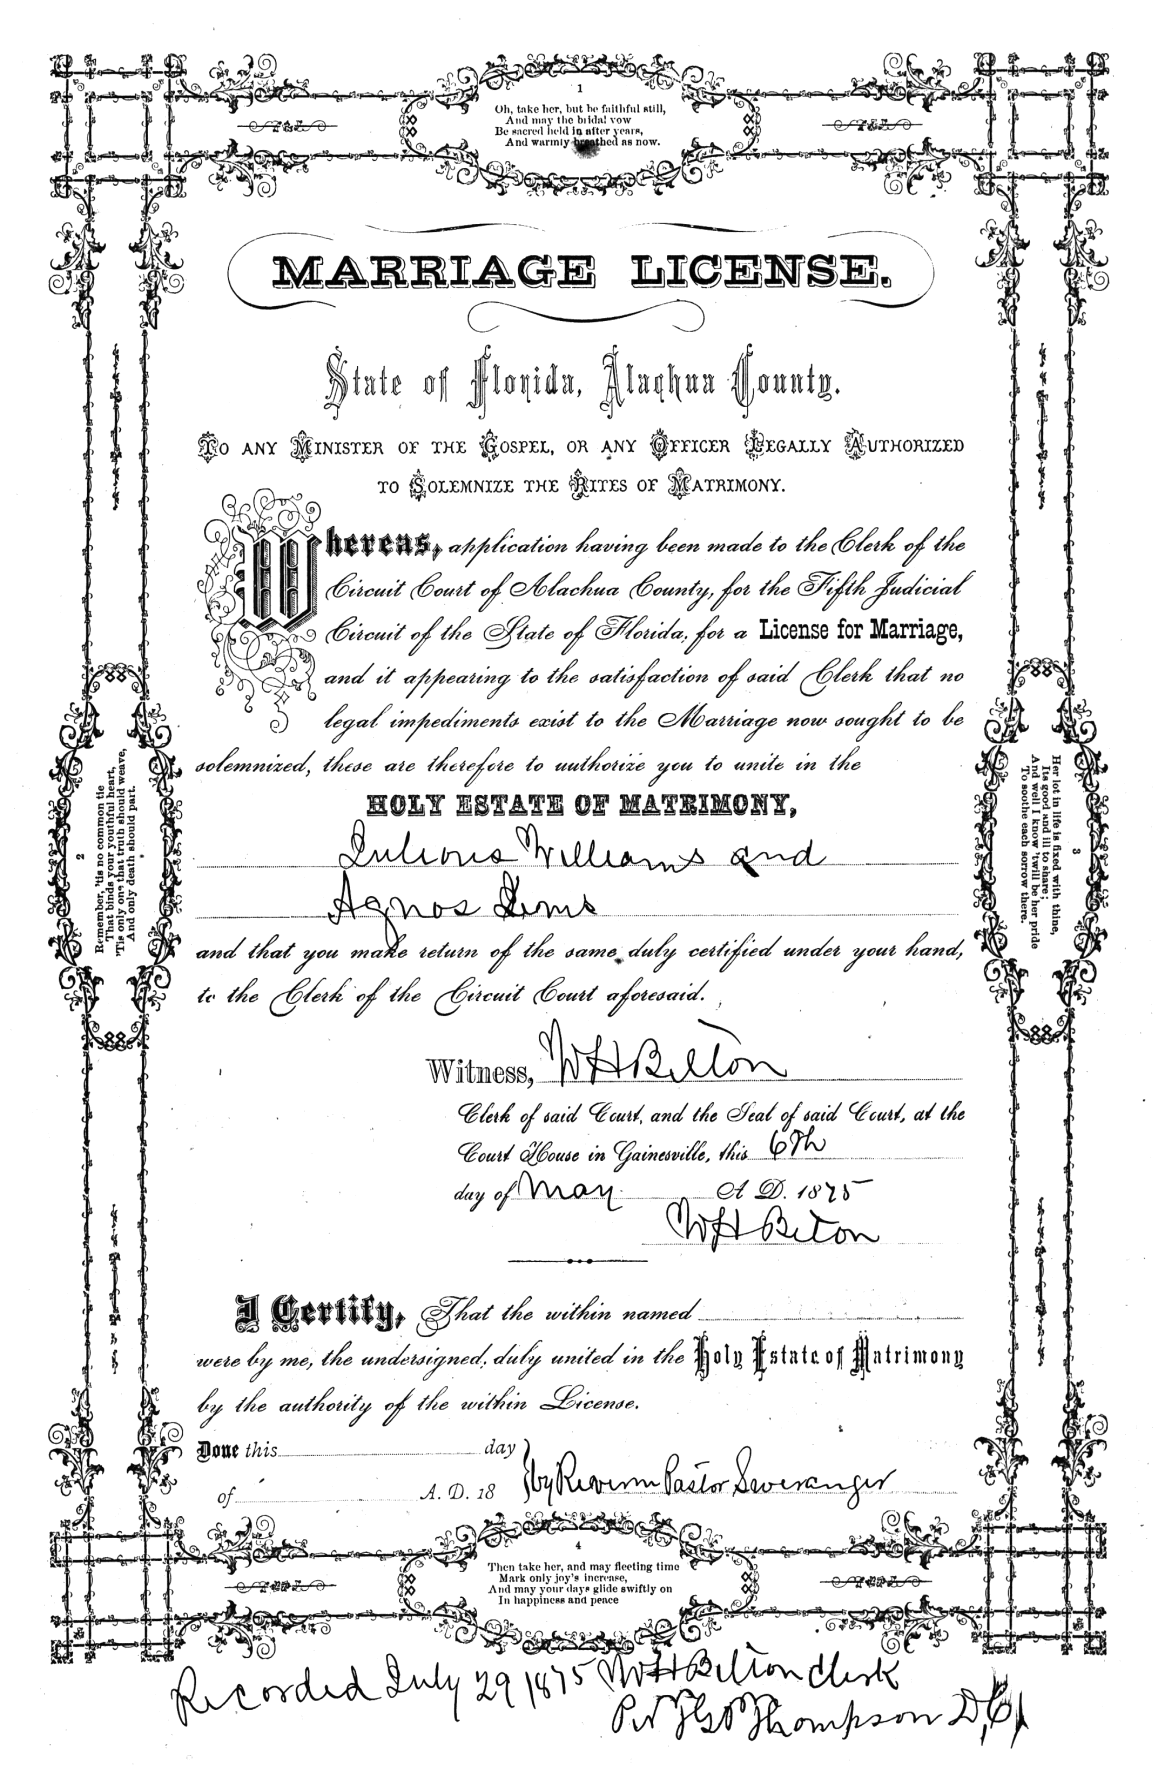 1
Oh, take her, but be faithful still,
And may the bridal vow
Be sacred held in after years,
And warmly breathed as now.
MARRIAGE LICENSE.
State of Florida, Alachua County.
TO ANY MINISTER OF THE GOSPEL, OR ANY OFFICER LEGALLY AUTHORIZED
TO SOLEMNIZE THE RITES OF MATRIMONY.
Whereas, application having been made to the Clerk of the
Circuit Court of Alachua County, for the Fifth Judicial
Circuit of the State of Florida, for a License for Marriage,
and it appearing to the satisfaction of said Clerk that no
legal impediments exist to the Marriage now sought to be
solemnized, these are therefore to authorize you to unite in the
HOLY ESTATE OF MATRIMONY,
Williams and
Agnos Sims
and that you make return of the same duly certified under your hand,
to the Clerk of the Circuit Court aforesaid.
Witness, W H Belton
Clerk of said Court, and the Seal of said Court, at the
Court House in Gainesville, this 6th
day of May A D. 1875
W H Belton
I Certify, That the within named
were by me, the undersigned, duly united in the Holy Estate of Matrimony
by the authority of the within License.
Done this day
of A. D. 18 by Pastor
2
Remember, 'tis no common tie
That binds your youthful heart,
'Tis only one that truth should weave,
And only death should part.
3
Her lot in life is fixed with thine,
Its good and ill to share;
And well I know 'twill be her pride
To soothe each sorrow there.
4
Then take her, and may fleeting time
Mark only joy's increase,
And may your days glide swiftly on
In happiness and peace
Recorded July 29 1875 W H Belton Clerk
Thompson D,C,